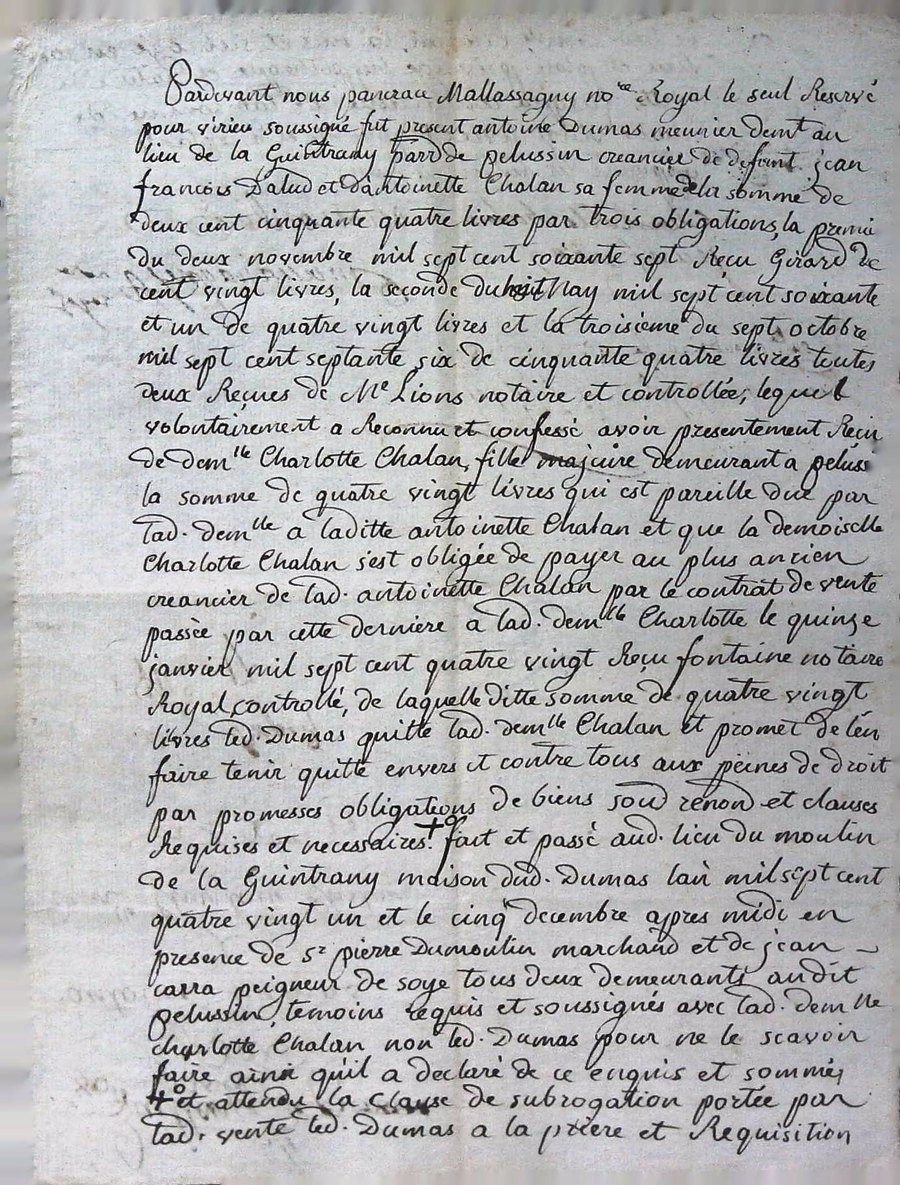 Pardevant nous pancrace Mallassagny no.re Royal le seul Reservé
pour virieu soussigné fut present antoine Dumas meunier demt au
lieu de la Guintrany parr de pelussin creancier de defunt jean
francois Dalud et dantoinette Chalan sa femme de la somme de
deux cent cinquante quatre livres par trois obligations, la premie
du deux novembre mil sept cent soixante sept Reçu Girard de
cent vingt livres, la seconde du huit May mil sept cent soixante
et un de quatre vingt livres et la troisieme du sept octobre
mil sept cent septante six de cinquante quatre livres toutes
deux Reçues de Me Lions notaire et controllée, lequel
volontairement a Reconnu et confessé avoir presentement Recu
de demlle Charlotte Chalan, fille majeure demeurant a peluss
la somme de quatre vingt livres qui est pareille due par
lad. demlle a laditte antoinette Chalan et que la demoiselle
Charlotte Chalan s'est obligée de payer au plus ancien
creancier de lad. antoinette Chalan par le contrat de vente
passée par cette derniere a lad. demlle Charlotte le quinze
janvier mil sept cent quatre vingt Reçu fontaine notaire
Royal, controllé, de laquelle ditte somme de quatre vingt
livres led. Dumas quitte lad. demlle Chalan et promet de l'en
faire tenir quitte envers et contre tous aux peines de droit
par promesses obligations de biens soud renond et clauses
Requises et necessaires. +o fait et passé aud. lieu du moulin
de la Guintrany maison dud. Dumas l'an mil sept cent
quatre vingt un et le cinq decembre apres midi en
presence de sr pierre Dumoulin marchand et de jean
carra peigneur de soye tous deux demeurants audit
pelussin, temoins requis et soussignés avec lad. demlle
charlotte Chalan non led. Dumas pour ne le scavoir
faire ainsi qu'il a declaré de ce enquis et sommé,
+o et attendu la clause de subrogation portée par
lad. vente led. Dumas a la priere et Requisition